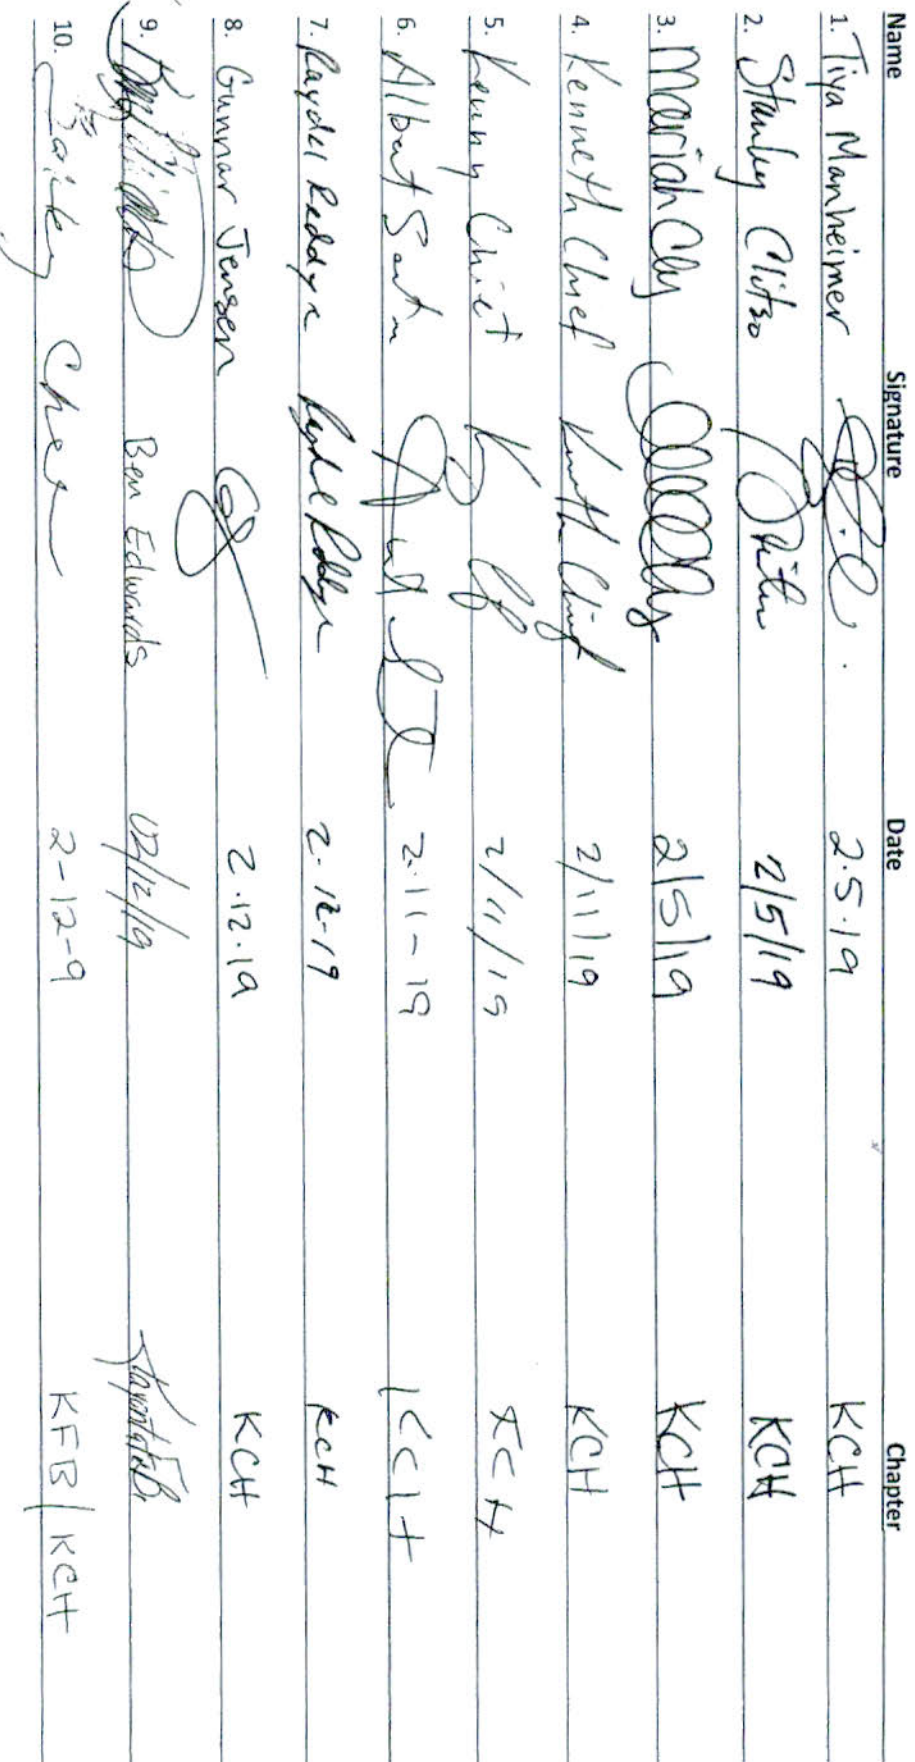 Name Signature Date Chapter
1. Tiya Manheimer 2.5.19 KCH
2. Stanley Clitso 2/5/19 KCH
3. Mariah Cly 2/5/19 KCH
4. Kenneth Chief Kenneth Chief 2/11/19 KCH
5. Kenny Chief 2/11/19 KCH
6. Albert 2.11-19 KCH
7. Raydel Reddye Raydel Reddye 2.12-19 KCH
8. Gunnar Jensen GJ 2.12.19 KCH
9. Ben Edwards 02/12/19
10. 2-12-9 KFB/KCH